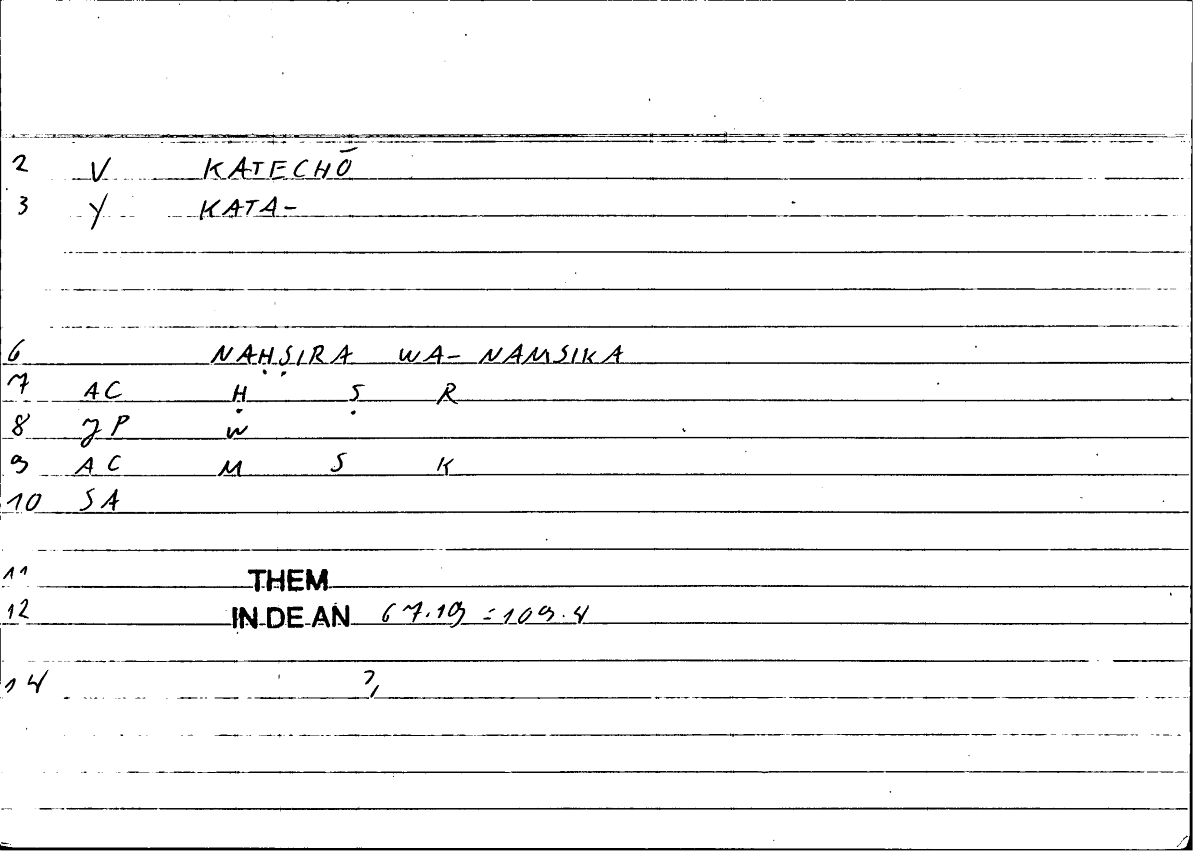 2 V KATECHŌ
3 Y KATA-
6 NAḤṢIRA WA- NAMSIKA
7 AC Ḥ Ṣ R
8 JP W
9 AC M S K
10 SA
11 THEM
12 IN DE AN 67.19 = 109.4
14 ?,